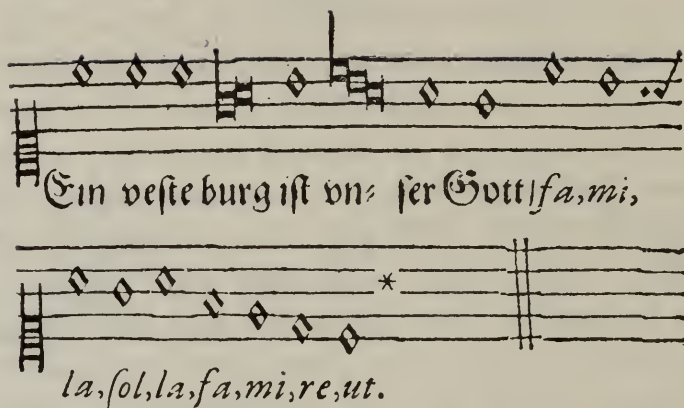 Ein veſte burg iſt vn⸗ ſer Gott/ fa, mi,
la, ſol, la, fa, mi, re, ut.